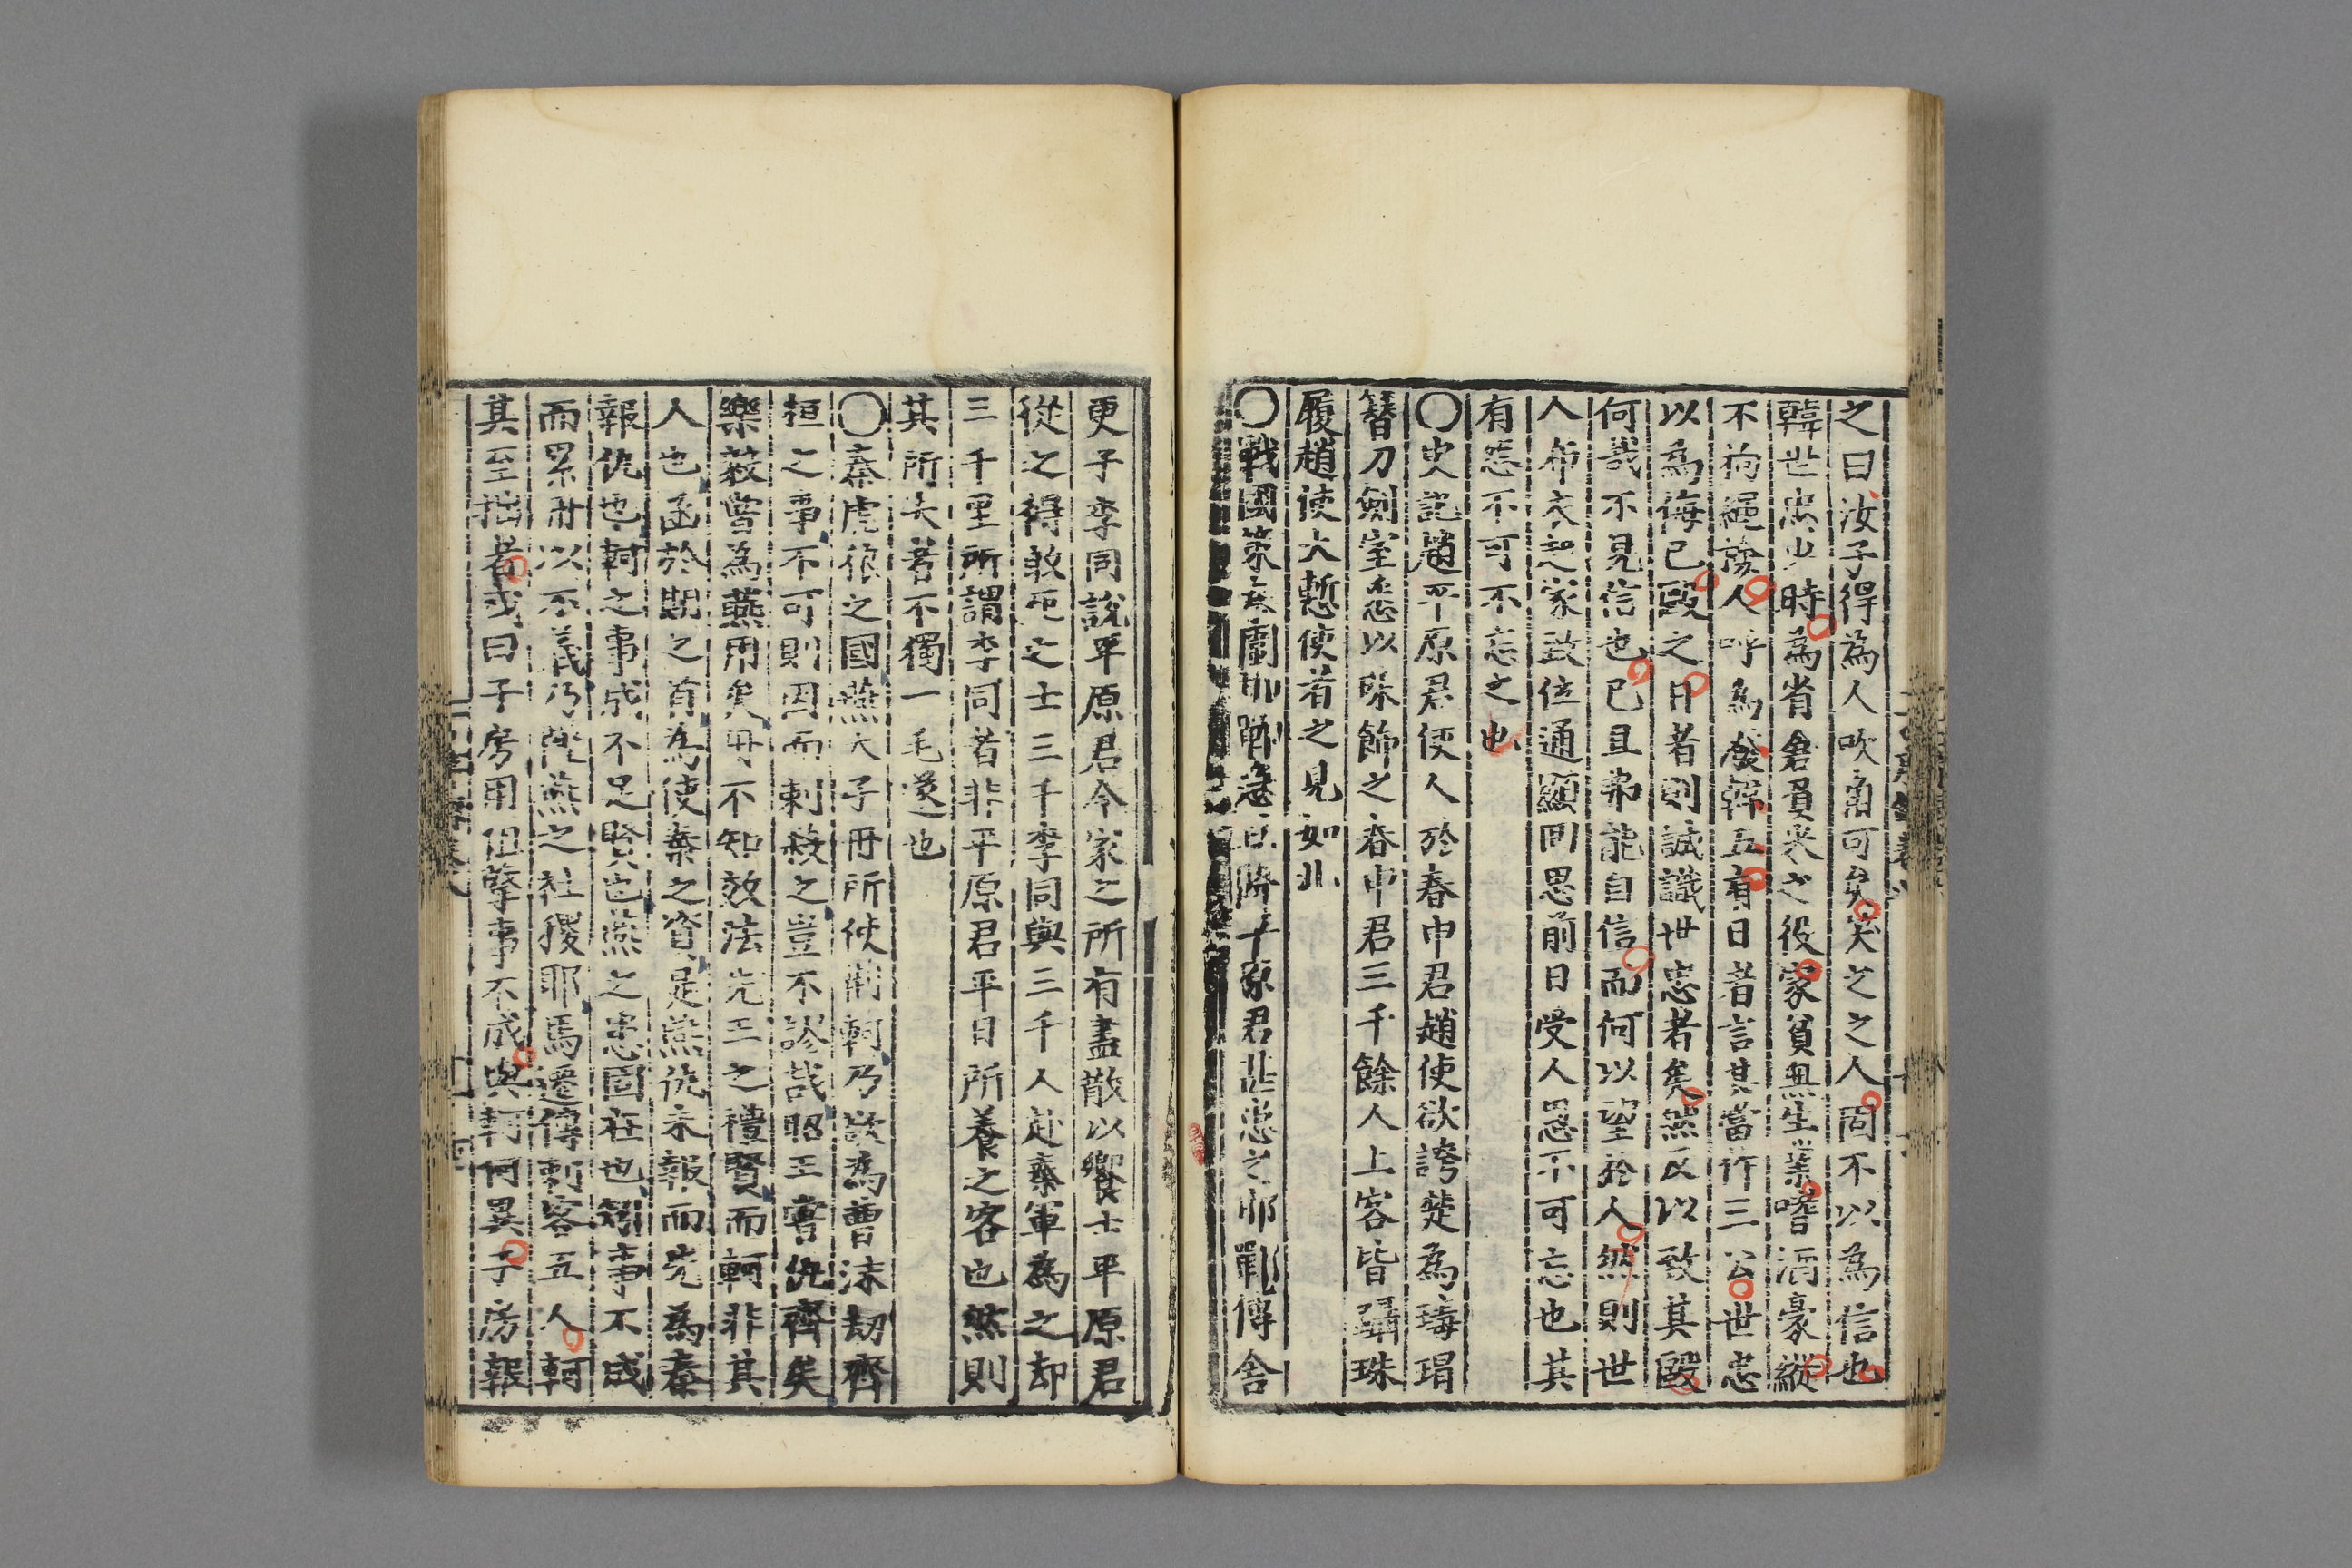 之曰汝子得為人吹角可矣笑之之人固不以為信也
韓世忠少時為省倉負米之役家貧無生業嗜酒豪縱
不拘繩撿人呼為潑韓五有日者言其當作三公世忠
以為侮己毆之日者則誠識世忠者矣然反以致其毆
何哉不見信也己且弗能自信而何以望於人然則世
人布衣起家致位通顯回思前日受人恩不可忘也其
有怨不可不忘之也
〇史記趙平原君使人於春申君趙使欲誇楚為瑇瑁
簪刀劍室悉以珠飾之春申君三千餘人上客皆躡珠
履趙使大慙使者之見如此
〇戰國策秦圍邯鄲急且降平原君甚患之邯鄲傳舍
更子李同說平原君令家之所有盡散以饗士平原君
從之得敢死之士三千李同與三千人赴秦軍為之却
三千里所謂李同者非平原君平日所養之客也然則
其所失著不獨一毛遂也
〇秦虎狼之國燕太子丹所使荊軻乃欲為曹沫劫齊
桓之事不可則因而刺殺之豈不謬哉昭王嘗仇齊矣
樂毅嘗為燕用矣丹不知效法先王之禮賢而軻非其
人也函於期之首為使秦之資是燕仇未報而先為秦
報仇也軻之事成不足賢也燕之患固在也矧事不成
而累丹以不義乃隳燕之社稷耶馬遷傳刺客五人軻
其至拙者或曰子房用徂擊事不成與軻何異子房報